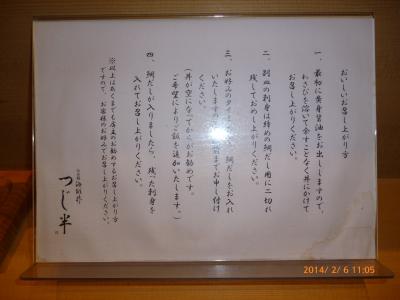 おいしいお召し上がり方
一、最初に黄身醤油をお出ししますので、
わさびを溶いて余すことなく丼にかけて
お召し上がりください。
二、別皿の刺身は締めの鯛だし用に二切れ
残しておめし上がりください。
三、お好みのタイミングで鯛だしをお入れ
いたします
までお申し付け
ください。
(丼が空になってからがお勧めです。
ご希望によりご飯を追加いたします。)
四、鯛だしが入りましたら、残った刺身を
入れてお召し上がりください。
※以上はあくまでも店主のお勧めするお召し上がり方
ですので、お客様のお好みでお召し上がりください。
海鮮丼
つじ半
2014/ 2/ 6 11:05